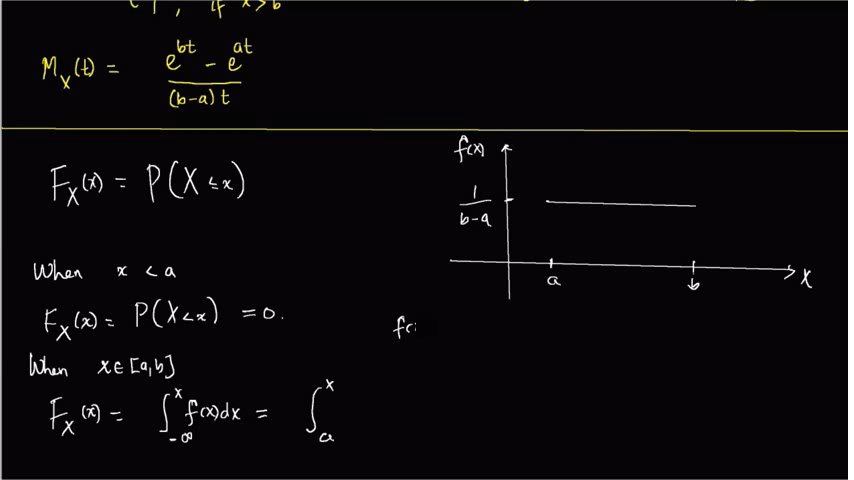 , if x > b
M_X(t) = (e^{bt} - e^{at}) / ((b-a)t)
F_X(x) = P(X ≤ x)
When x < a
F_X(x) = P(X < x) = 0.
When x ∈ [a,b]
F_X(x) = ∫_{-∞}^{x} f(x)dx = ∫_{a}^{x}
f(x)
1/(b-a)
a b X
f(